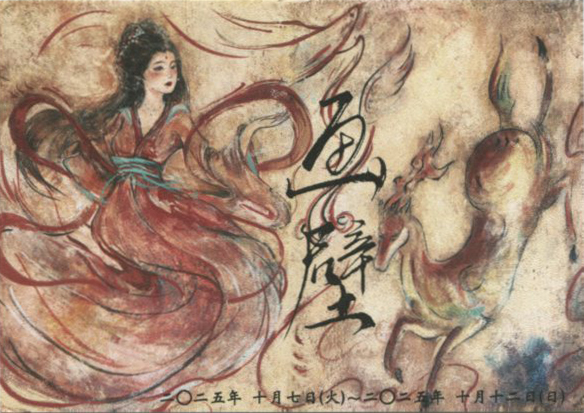 画壁
二〇二五年 十月七日(火)~二〇二五年 十月十二日(日)